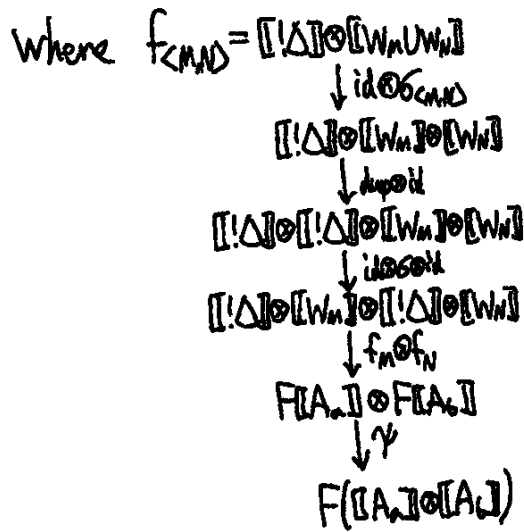 where f<M,N> = ⟦!Δ⟧⊗⟦W_M∪W_N⟧
↓ id⊗σ<M,N>
⟦!Δ⟧⊗⟦W_M⟧⊗⟦W_N⟧
↓ dup⊗id
⟦!Δ⟧⊗⟦!Δ⟧⊗⟦W_M⟧⊗⟦W_N⟧
↓ id⊗σ⊗id
⟦!Δ⟧⊗⟦W_M⟧⊗⟦!Δ⟧⊗⟦W_N⟧
↓ f_M⊗f_N
F⟦A_a⟧⊗F⟦A_b⟧
↓ ψ
F(⟦A_a⟧⊗⟦A_b⟧)